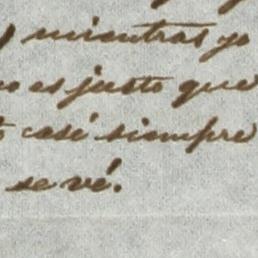 mientras yo
es justo que
casi siempre
se vé.